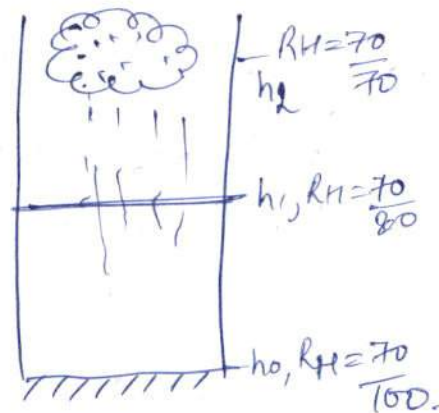 RH = 70/70
h2
h1, RH = 70/80
h0, RH = 70/100.